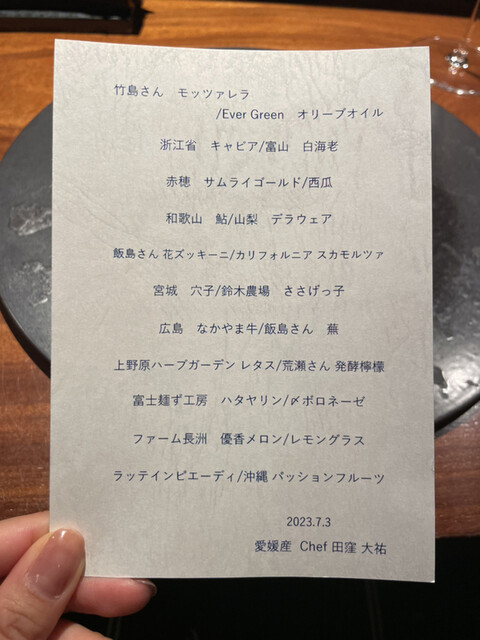 竹島さん　モッツァレラ
/Ever Green　オリーブオイル
浙江省　キャビア/富山　白海老
赤穂　サムライゴールド/西瓜
和歌山　鮎/山梨　デラウェア
飯島さん 花ズッキーニ/カリフォルニア スカモルツァ
宮城　穴子/鈴木農場　ささげっ子
広島　なかやま牛/飯島さん　蕪
上野原ハーブガーデン レタス/荒瀬さん 発酵檸檬
富士麺ず工房　ハタヤリン/〆ボロネーゼ
ファーム長洲　優香メロン/レモングラス
ラッテインピエーディ/沖縄 パッションフルーツ
2023.7.3
愛媛産　Chef 田窪 大祐